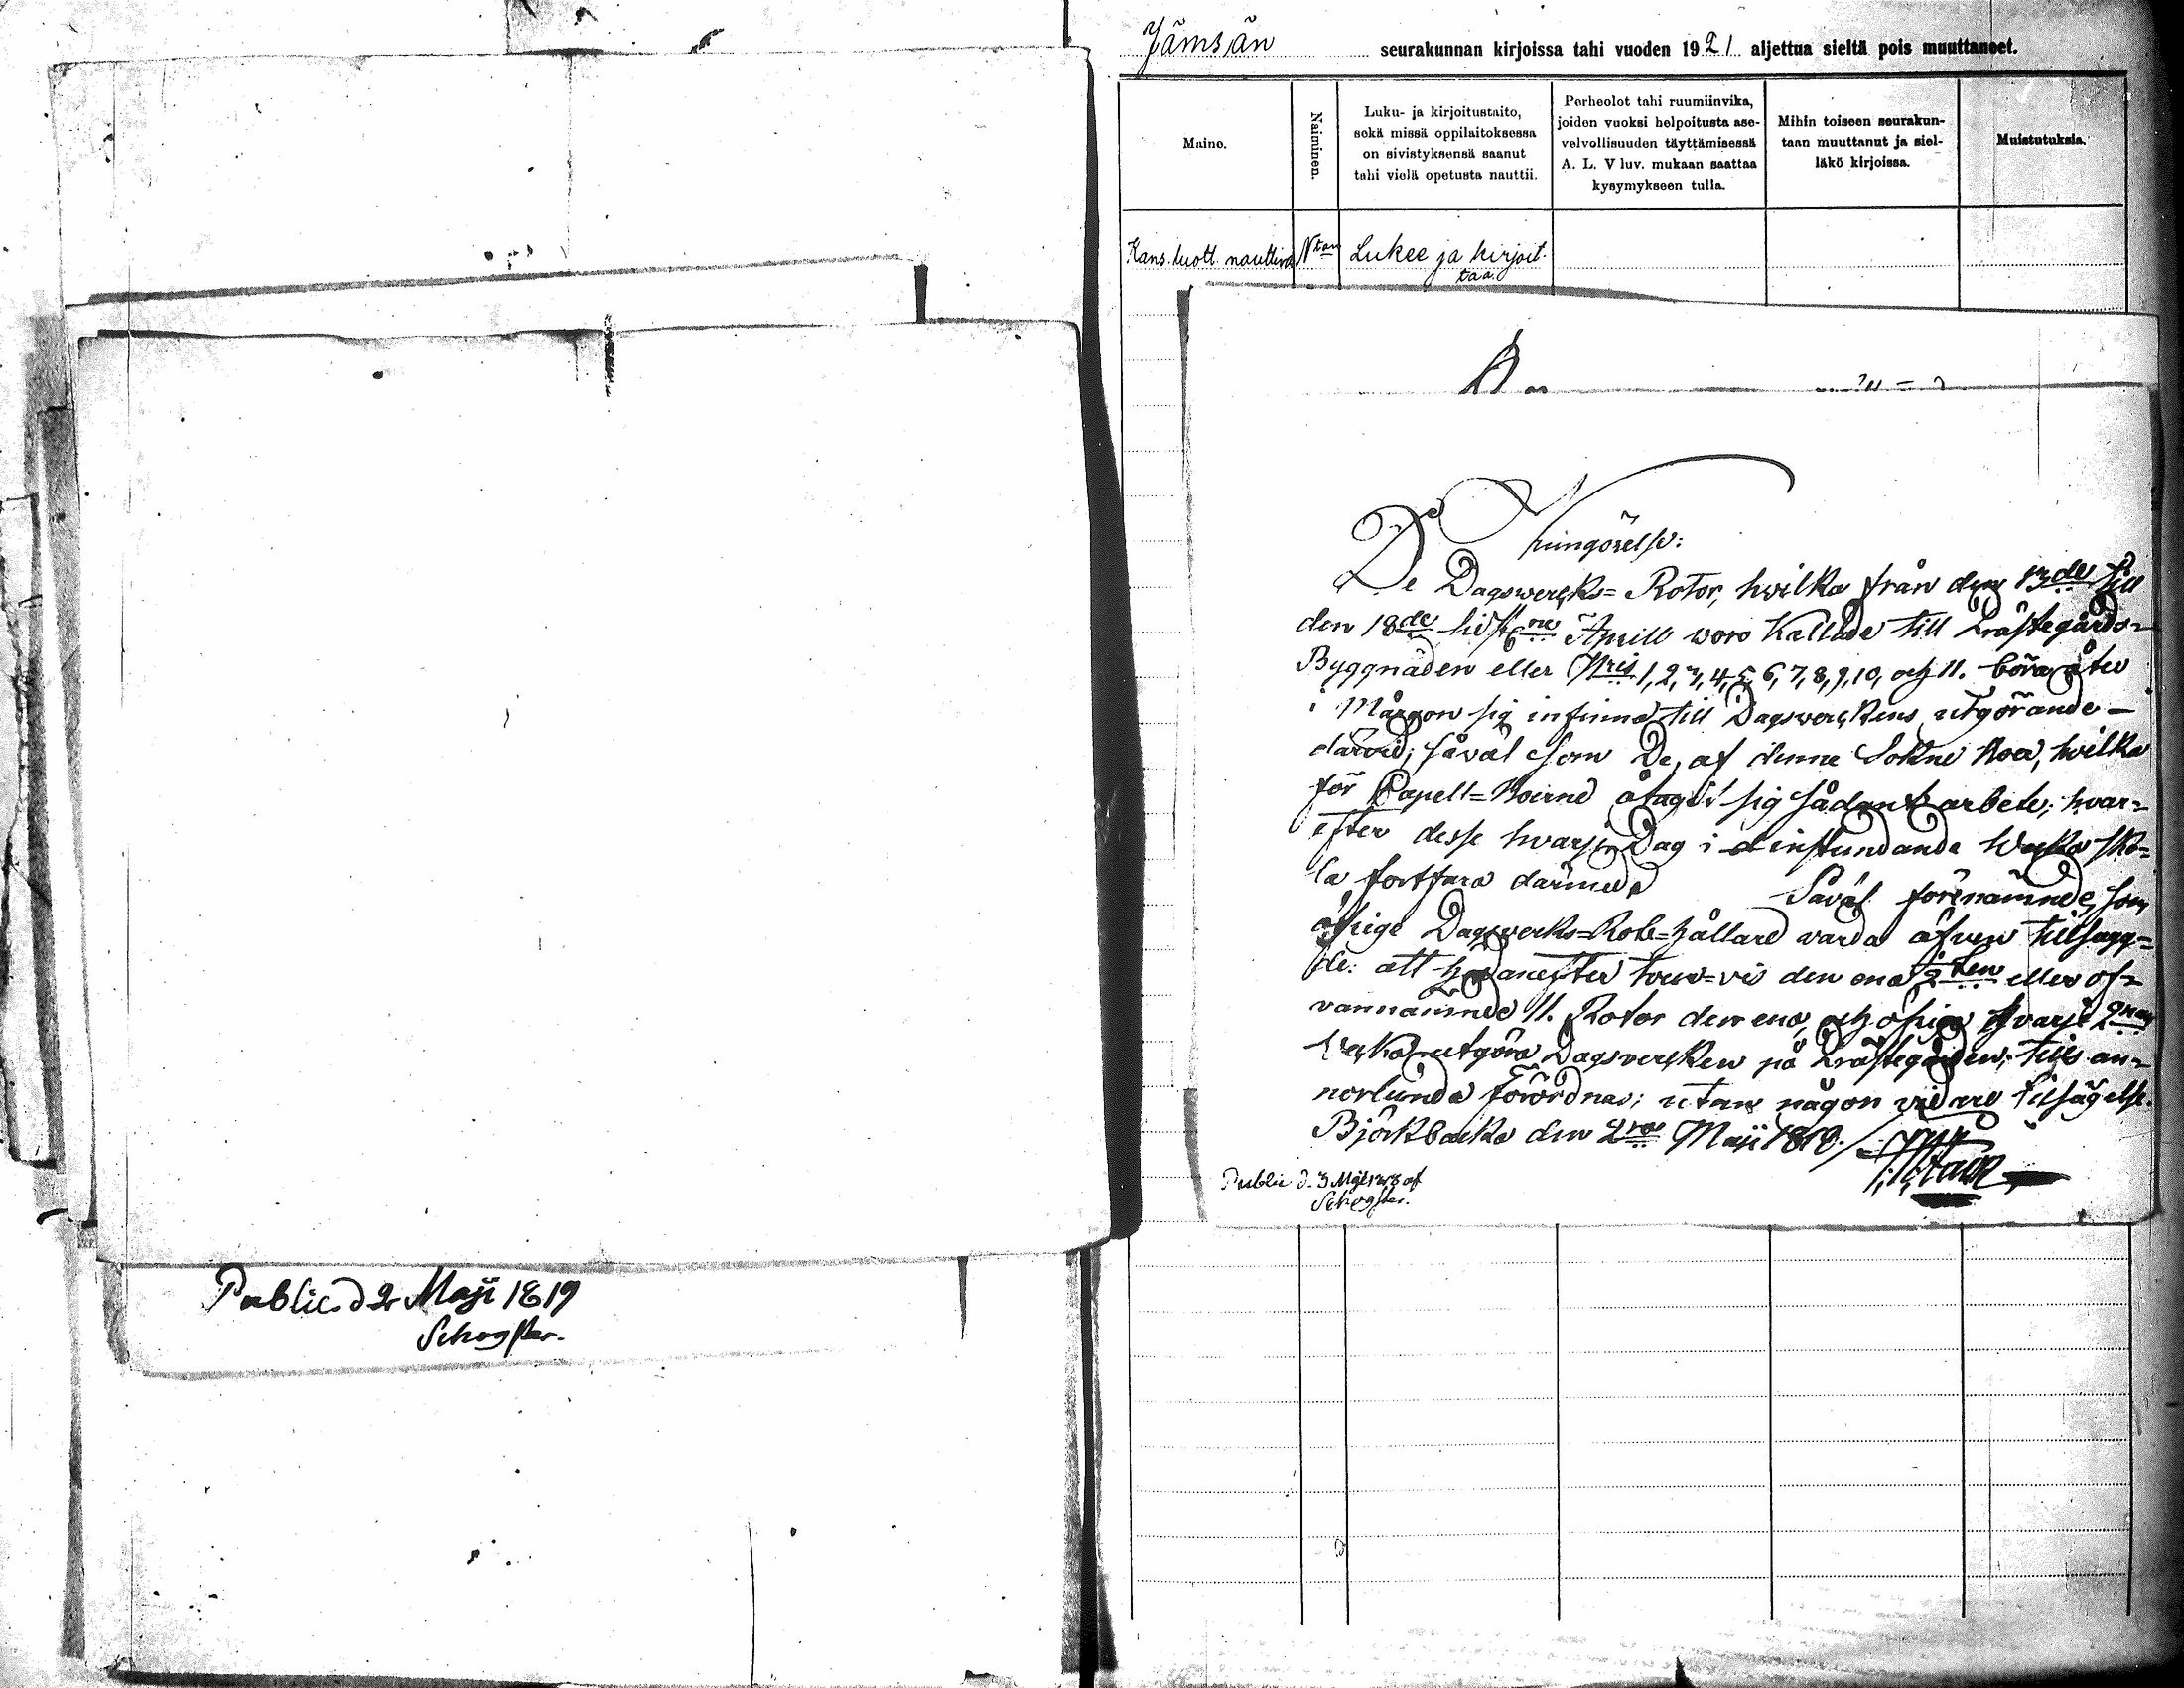 Public. d 2 Maji 1819
Schogster.
Jämsän seurakunnan kirjoissa tahi vuoden 1921 aljettua sieltä pois muuttaneet.
Maine.
Naiminen.
Luku- ja kirjoitustaito,
sekä missä oppilaitoksessa
on sivistyksensä saanut
tahi vielä opetusta nauttii.
Perheolot tahi ruumiinvika,
joiden vuoksi helpoitusta ase-
velvollisuuden täyttämisessä
A. L. V luv. mukaan saattaa
kysymykseen tulla.
Mihin toiseen seurakun-
taan muuttanut ja siel-
läkö kirjoissa.
Muistutuksia.
Kans. luott. nauttiva
Ntön
Lukee ja kirjoit-
taa.
Kungörelse:
De Dagswercks=Rotor, hvilka från den 13de till
den 18de Aprill woro Kallade till Prästegårds=
Byggnaden eller Nris 1, 2, 3, 4, 5, 6, 7, 8, 9, 10, och 11. böra åter
i Mårgon sig infinna till Dagswerckens utgörande
därvid, såväl som De, af denne Sokne boer, hvilka
för Capell=Boerne åtagit sig sådant arbete; hvar=
efter desse hvarje Dag i instundande Wecka sko=
la fortfara därmed. Såväl förenämnde, som
öfrige Dagswerks=Rote=hållare varda äfven tillsagg=
de: att hädanefter den ena eller of=
vannämnde 11. Rotor den ena, och öfrige hvarje
Vecka utgöra Dagsvercken på Prästegården, tills an=
norlunda förordnas; utan någon vidare tillsägelse.
Björkbacka den 2ra Maji 1818.
Public d. 3 Maji 1818 af
Schogster.